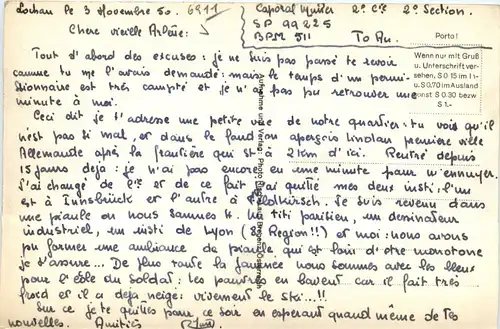 Lochau le 3 Novembre 50. 6911
Chere vieille Arlène:
Caporal 2° Cie 2° Section.
SP 99225
BPM 511 T.O.A.
Porto!
Wenn nur mit Gruß
u. Unterschrift ver-
sehen, S 0.15 im In-
u. S 0.70 im Ausland
sonst S 0.30 bezw
S 1.-
Aufnahme und Verlag: Photo Bregenz Österreich
Tout d'abord des excuses: je ne suis pas passé te revoir
comme tu me l'avais demandé: mais le temps d'un permi-
ssionnaire est très compté et je n'ai pas pu retrouver une
minute à moi.
Ceci dit je t'adresse une petite vue de notre quartier: tu vois qu'il
n'est pas si mal, et dans le fond on aperçois Lindau première ville
Allemande après la frontière qui est à 2 km d'ici. Rentré depuis
15 jours deja: je n'ai pas encore eu une minute pour m'ennuyer.
J'ai changé de Cie et de ce fait j'ai quitté mes deux insti: l'un
est à Innsbrück et l'autre à Feldkirsch. Je suis revenu dans
une piaule ou nous sommes 4. Un titi parisien, un dessinateur
industriel, un insti de Lyon (8° Région!!) et moi: nous avons
pu former une ambiance de piaule qui est loin d'être monotone
je t'assure... De plus toute la journée nous sommes avec les bleus
pour l'école du soldat: les pauvres en bavent car il fait très
froid et il a deja neigé: vivement le ski...!!
Sur ce je te quittes pour ce soir en esperant quand même de tes
nouvelles. Amitiés